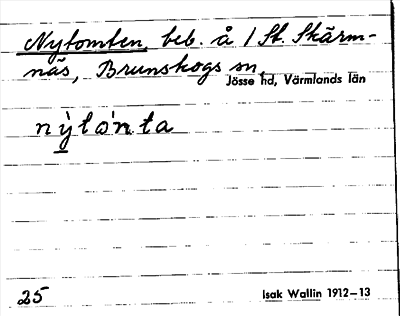 Nytomten, beb. å 1 St. Skärm-
näs, Brunskogs sn,
Jösse hd, Värmlands län
nỳtòn.ta
25
Isak Wallin 1912–13